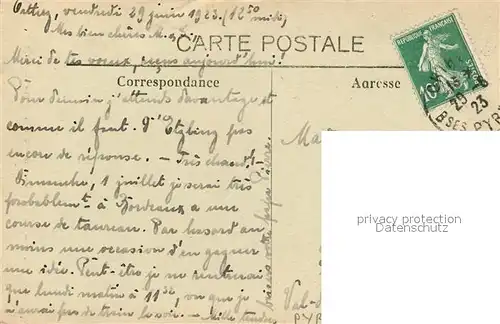 vendredi 29 juin 1923 (12 50 midi)
Mes bien chères
CARTE POSTALE
Merci de tes voeux, reçus aujourd'hui!
REPUBLIQUE FRANÇAISE
10
Correspondance
Adresse
Pour demain j'attends davantage et
comme il faut. D' pas
encore de réponse. — Très chaud! —
Dimanche, 1 juillet je serai très
probablement à Bordeaux a une
course de taureau. Par hasard au
moins une occasion d'en gagner
une idée. Peut-être je ne rentrerai
que lundi matin à 11 32, vu que je
n'aurai pas de train le soir. — Mille
baisers votre
23
BSES PYR
privacy protection
Datenschutz
Val-
PYR